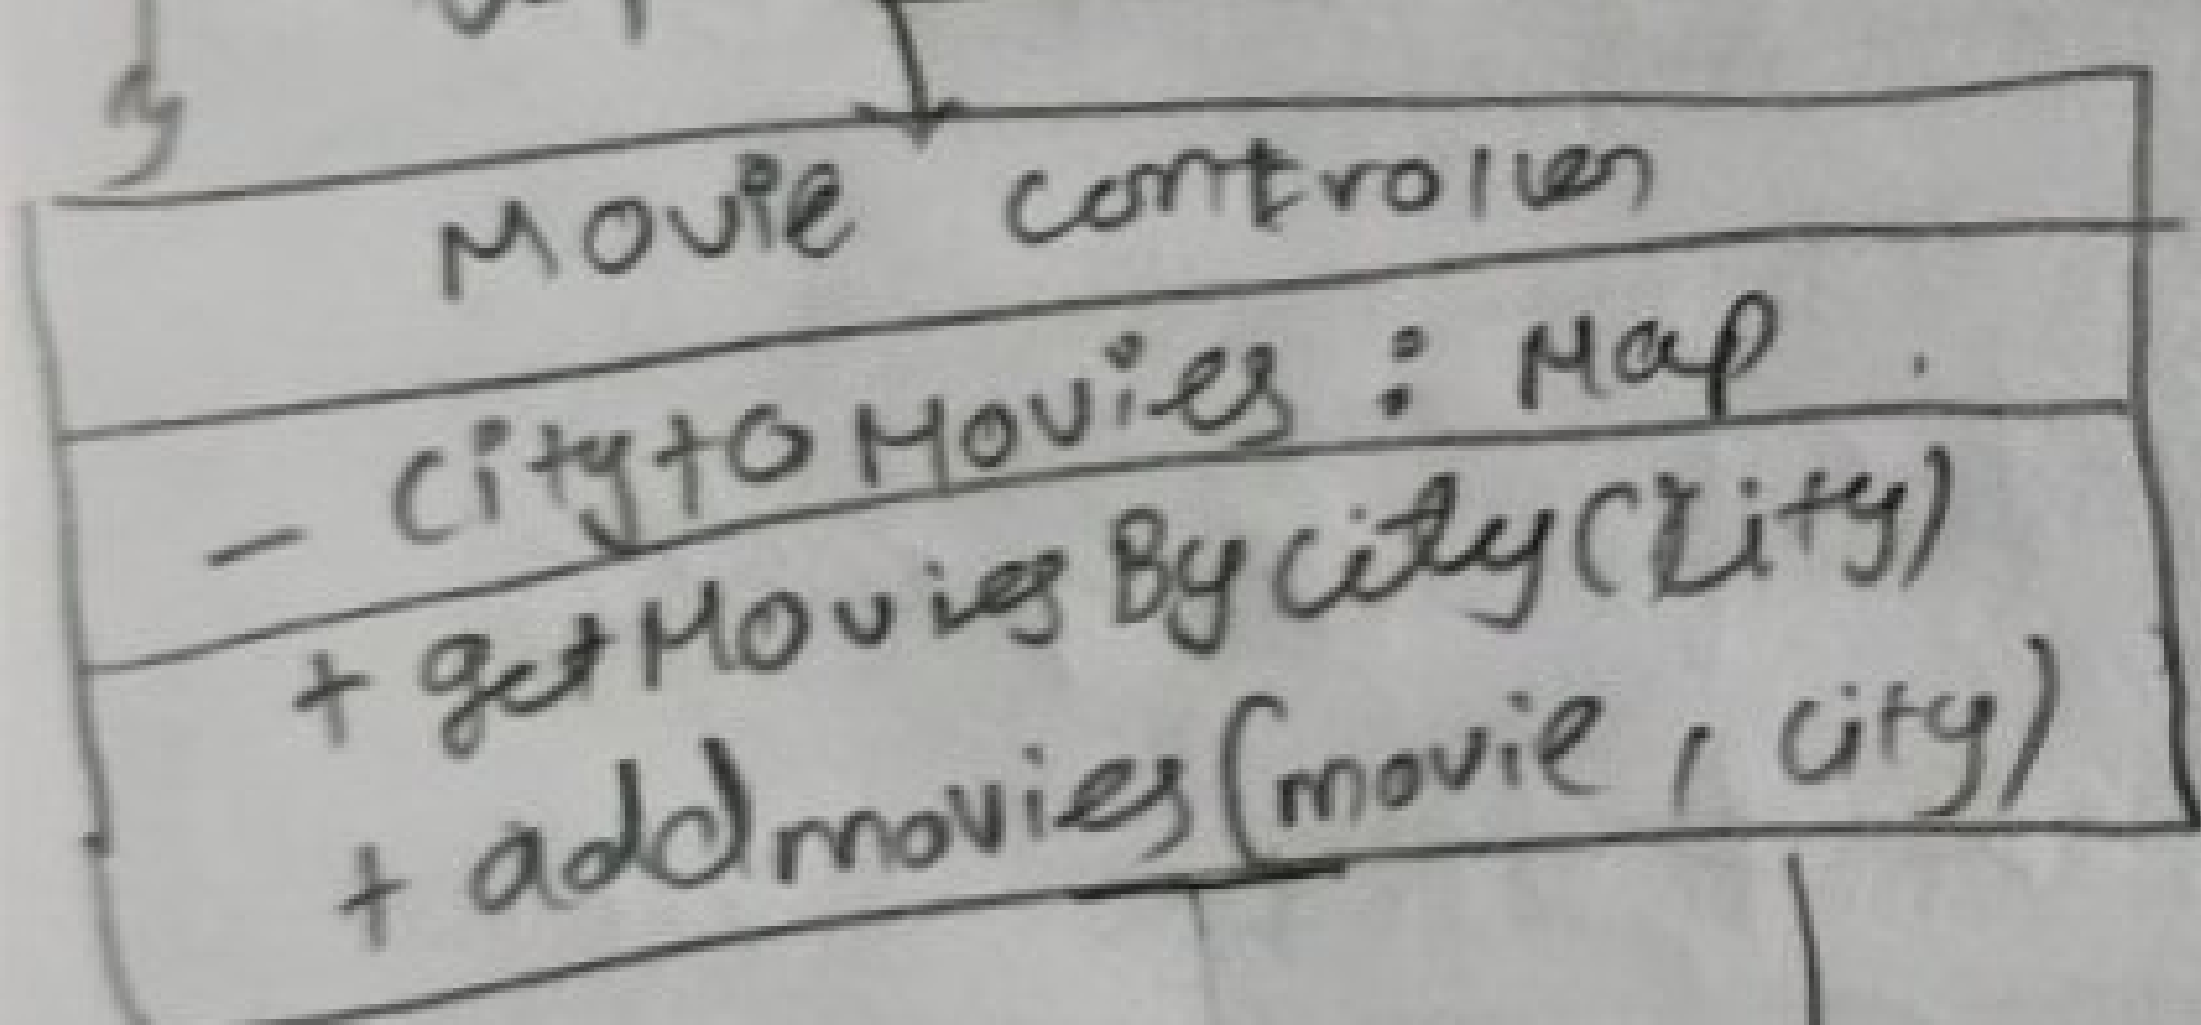 Movie controller
- CitytoMovies : Map
+ getMoviesByCity(City)
+ addmovies(movie, city)